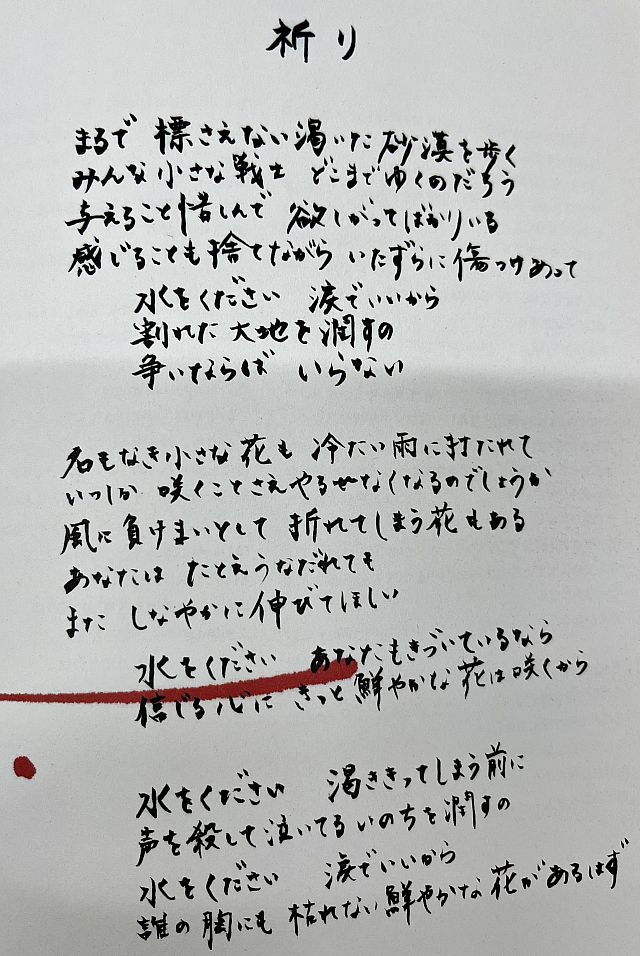 祈り
まるで 標さえない渇いた 砂漠を歩く
みんな小さな戦士 どこまでゆくのだろう
与えること惜しんで 欲しがってばかりいる
感じることも捨てながら いたずらに傷つけあって
水をください 涙でいいから
割れた大地を潤すの
争いならば いらない
名もなき小さな花も 冷たい雨に打たれて
いつしか 咲くことさえやるせなくなるのでしょうか
風に負けまいとして 折れてしまう花もある
あなたは たとえうなだれても
また しなやかに伸びてほしい
水をください あなたもきづいているなら
信じる心に きっと鮮やかな花は咲くから
水をください 渇ききってしまう前に
声を殺して泣いてるいのちを潤すの
水をください 涙でいいから
誰の胸にも 枯れない鮮やかな花があるはず